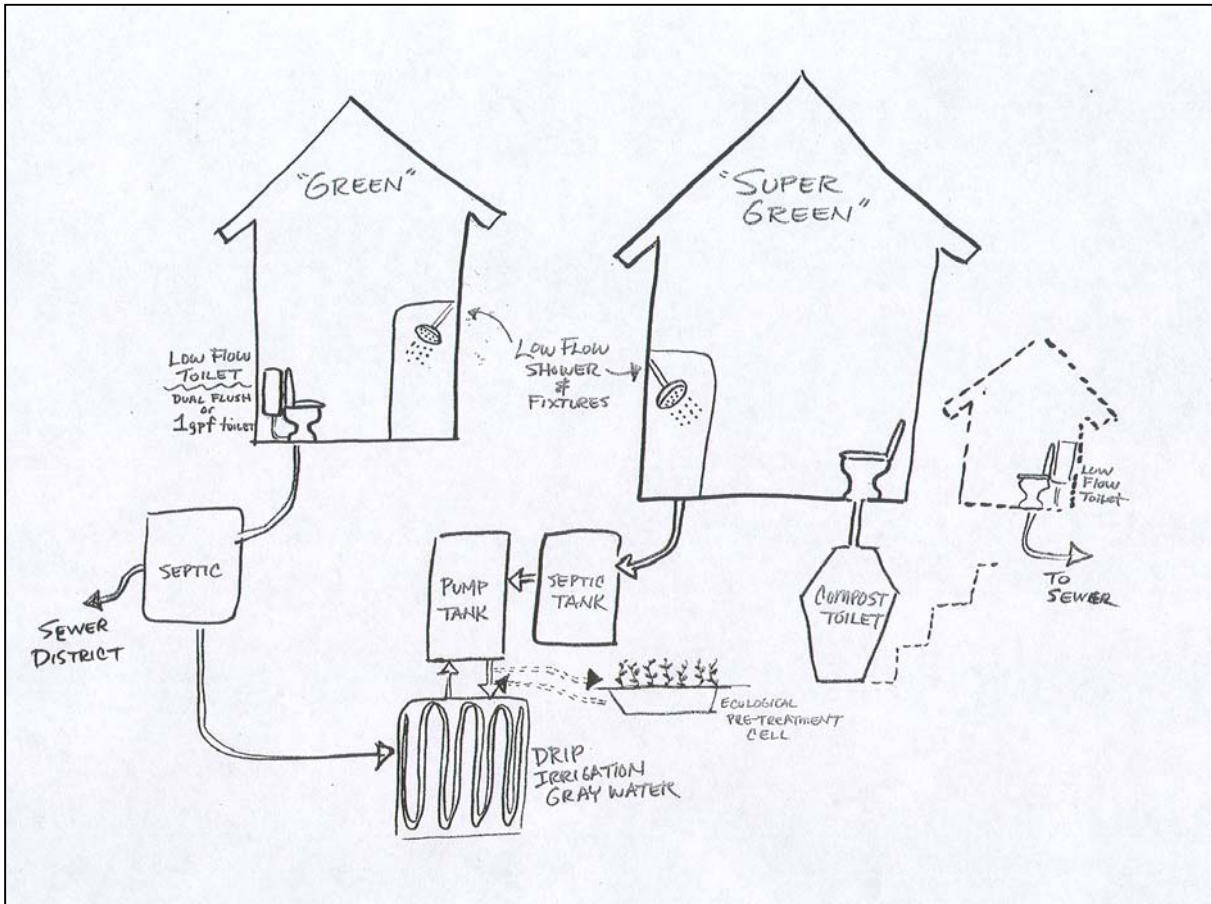 "GREEN"
"SUPER
GREEN"
LOW FLOW
TOILET
DUAL FLUSH
or
1gpf TOILET
LOW FLOW
SHOWER
&
FIXTURES
LOW
FLOW
TOILET
SEPTIC
SEWER
DISTRICT
PUMP
TANK
SEPTIC
TANK
COMPOST
TOILET
TO
SEWER
ECOLOGICAL
PRE-TREATMENT
CELL
DRIP
IRRIGATION
GRAY WATER